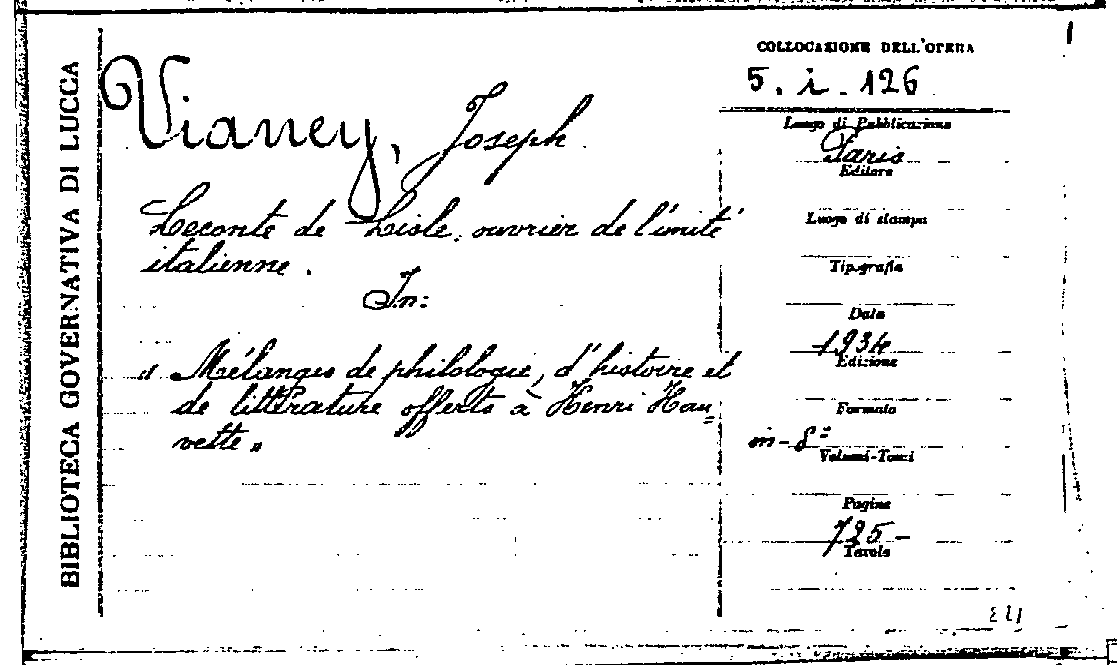 BIBLIOTECA GOVERNATIVA DI LUCCA
Vianey, Joseph
Leconte de Lisle, ouvrier de l'unité
italienne.
In:
" Mélanges de philologie, d'histoire et
de littérature offerts à Henri Hau=
vette "
COLLOCAZIONE DELL'OPERA
5. i. 126
Luogo di Pubblicazione
Paris
Editore
Luogo di stampa
Tipografia
Data
1934
Edizione
Formato
in-8º
Volumi-Tomi
Pagine
725-
Tavole